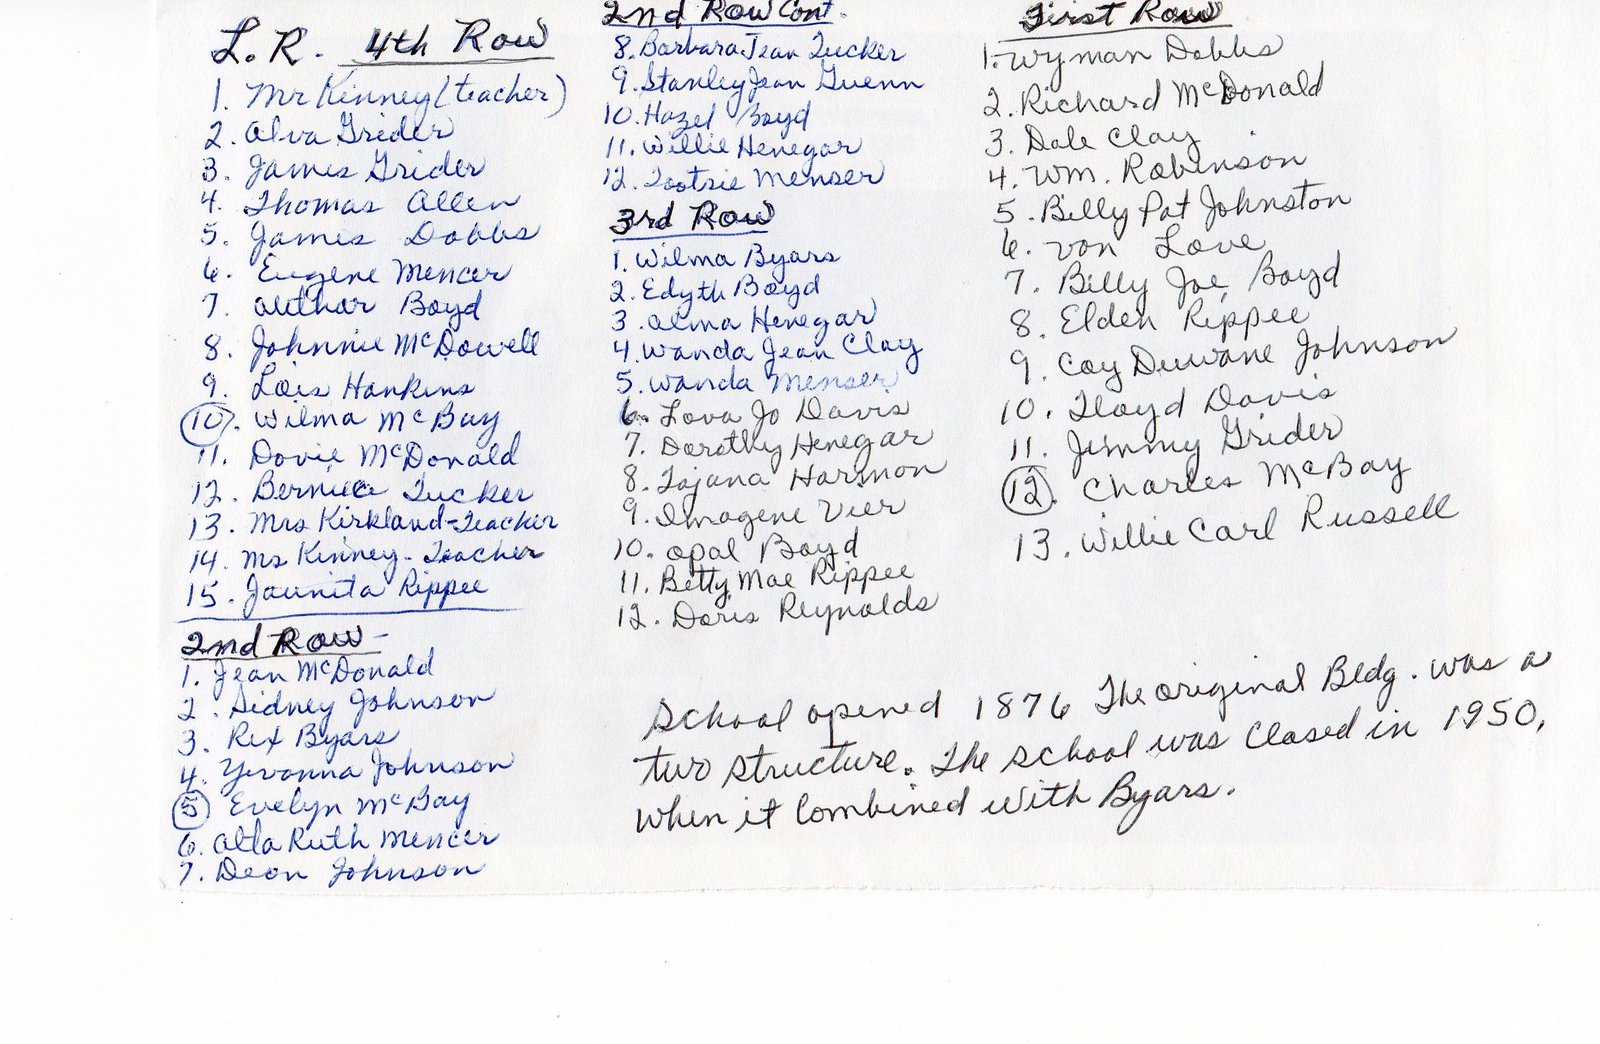 L.R. 4th Row
1. Mr Kinney (teacher)
2. Alva Grider
3. James Grider
4. Thomas Allen
5. James Dobbs
6. Eugene Mencer
7. Authar Boyd
8. Johnnie McDowell
9. Lois Hankins
10. Wilma McBay
11. Dovie McDonald
12. Bernice Tucker
13. Mrs Kirkland-Teacher
14. Ms Kinney-Teacher
15. Jaunita Rippee
2nd Row-
1. Jean McDonald
2. Sidney Johnson
3. Rex Byars
4. Yevonna Johnson
5 Evelyn McBay
6. Alta Ruth Mencer
7. Deon Johnson
2nd Row Cont.
8. Barbara Jean Tucker
9. Stanley Jean Guenn
10. Hazel Boyd
11. Willie Henegar
12. Tootsie Menser
3rd Row
1. Wilma Byars
2. Edyth Boyd
3. Alma Henegar
4. Wanda Jean Clay
5. Wanda Menser
6. Lova Jo Davis
7. Dorothy Henegar
8. Tajana Harmon
9. Imogene Vier
10. Opal Boyd
11. Betty Mae Rippee
12. Doris Reynolds
First Row
1. Wyman Dobbs
2. Richard McDonald
3. Dale Clay
4. Wm. Robinson
5. Billy Pat Johnston
6. Von Love
7. Billy Joe Boyd
8. Elden Rippee
9. Coy Duwane Johnson
10. Floyd Davis
11. Jimmy Grider
12. Charles McBay
13. Willie Carl Russell
School opened 1876 The original Bldg. was a
two structure. The school was closed in 1950,
when it combined with Byars.